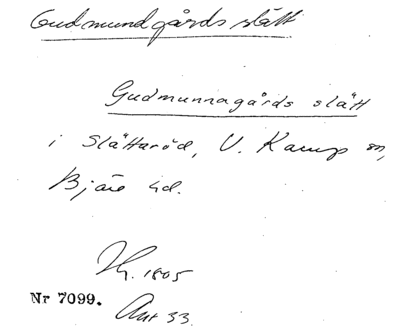 Gudmundgårds slätt
Gudmunnagårds slätt
i Slättaröd, V. Karup sn,
Bjäre hd.
1805
Nr 7099.
Ant 33